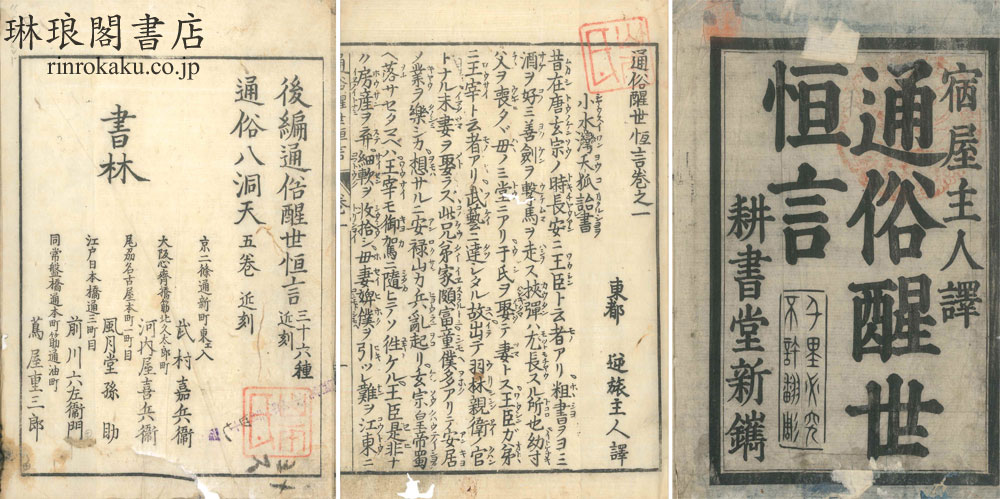 琳琅閣書店
rinrokaku.co.jp
宿屋主人譯
通俗醒世
恒言
耕書堂新鐫
千里必究
不許翻彫
通俗醒世恒言巻之一
小水灣天狐詒書
東都 逆旅主人譯
昔在唐玄宗ノ時長安ニ王臣ト云者アリ粗書ヲヨミ
酒ヲ好ミ善劍ヲ撃馬ヲ走ス挾彈ハ尤長スル所也幼寸
父ヲ喪タヾ母ノミ堂ニアリ于氏ヲ娶テ妻トス王臣ガ弟
ニ王宰ト云者アリ武藝ニ達シタル故出テ羽林親衛ノ官
トナル未妻ヲ娶ラス此兄弟家頗富童僕多アリテ安居
ノ業ヲ樂シカ想サルニ安禄山カ兵乱起リ玄宗皇帝蜀
ヘ落サセタマヘハ王宰モ御駕ニ随ヒテソ往ケル王臣是非ナ
ク房産ヲ弃細軟ヲ收拾シ母妻婢僕ヲ引ツレ難ヲ江東ニ
後編通俗醒世恒言 三十六種 近刻
通俗八洞天 五巻 近刻
書林
京二條通新町東エ入 武村嘉兵衞
大阪心齊橋筋北久太郎町 河内屋喜兵衞
尾刕名古屋本町一町目 風月堂孫助
江戸日本橋通三町目 前川六左衞門
同常盤橋通本町筋通油町 蔦屋重三郎